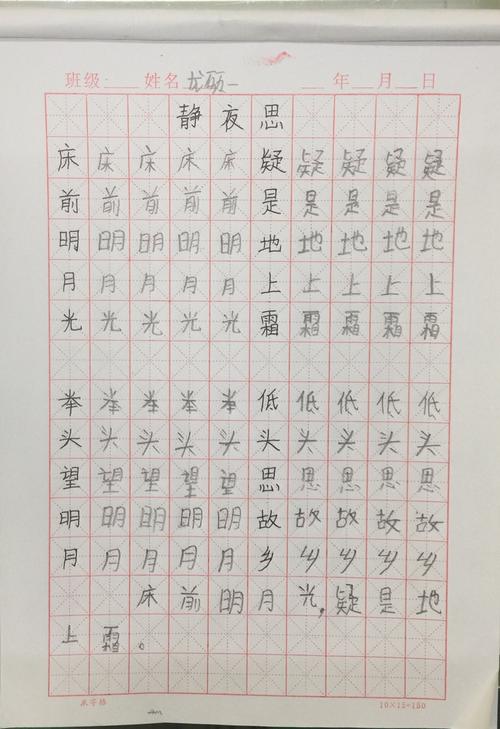 班级 姓名 年 月 日
静夜思
床床床床床疑疑疑疑疑
前前前前前是是是是是
明明明明明地地地地地
月月月月月上上上上上
光光光光光霜霜霜霜霜
举举举举举低低低低低
头头头头头头头头头头
望望望望望思思思思思
明明明明明故故故故故
月月月月月乡乡乡乡乡
床前明月光,疑是地
上霜。
米字格 10×15=150